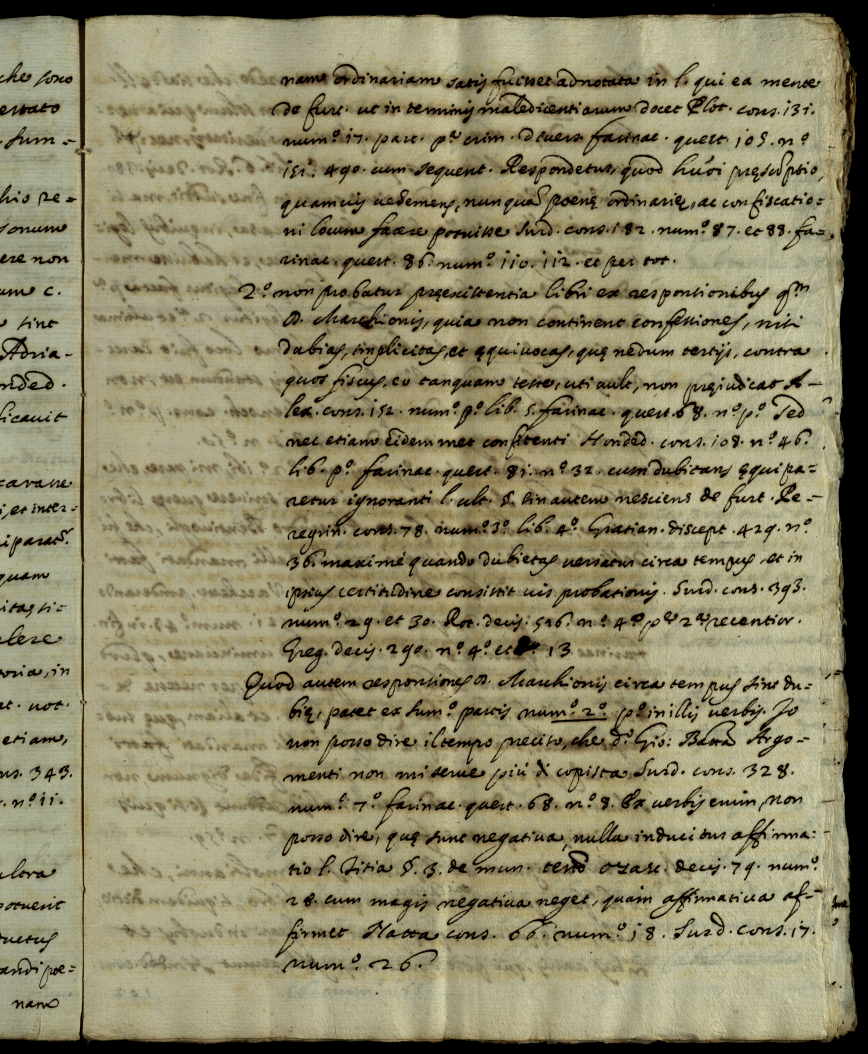 che sono
ertato
. Sum=
hio re=
sonum
ere non
am c.
sint
Adria-
nded.
ficauit
carane
, et inter-
quam
itas si-
alere
toria, in
at. not.
etiam,
ns. 343.
. n.º 11.
ultra
potuerit
ructus
andi poe=
nam
nam ordinariam satis fuisset adnotata in l. qui ea mente
de furt. ut in terminis maledicentiarum docet Plot. cons. 131.
num.º 17. part. p.ª crim. diuers. farinac. quest. 105. n.º
151. 490. cum sequent. Respondetur, quod hm̃oi pręsũptio,
quamuis uehemens, nunquã poenę ordinarię, ac confiscatio-
ni locum facere potuisse Surd. cons. 182. num.º 87. et 88. fa-
rinac. quest. 86. num.º 110. 112. et per tot.
2.º non probatur pręexistentia libri ex responsionibus q.m
D. Marchionis, quia non continent confessiones, nisi
dubias, implicitas, et ęquiuocas, quę nedum tertijs, contra
quos fiscus, eo tanquam teste, uti uult, non pręiudicat A-
lex. cons. 152. num.º p.º lib. 5. farinac. quest. 68. n.º p.º sed
nec etiam eidemmet confitenti Honded. cons. 108. n.º 46.
lib. p.º farinac. quest. 81. n.º 32. cum dubitans ęquipa=
retur ignoranti l. ult. §. sin autem nesciens de furt. Pe-
regrin. cons. 78. num.º 3.º lib. 4.º Gratian. discept. 429. n.º
36. maximè quando dubietas uersatur circa tempus, et in
ipsius certitudine consistit uis probationis. Surd. cons. 393.
num.º 29. et 30. Rot. decis. 516. n.º 4.º p.e 2.e recentior.
Greg. decis. 290. n.º 4.º et 13
Quod autem responsiones D. Marchionis circa tempus sint du-
bię, patet ex sum.º partis num.º 2.º p.º in illis uerbis. Io
non posso dire il tempo preciso, che d.º Gio: Batta Argo-
menti non mi serue più di copista Surd. cons. 328.
num.º 7.º farinac. quest. 68. n.º 8. Ex uerbis enim, non
posso dire, quę sunt negatiua, nulla inducitur affirma-
tio l. Titia §. 3. de man. test. Ozasc. decis. 79. num.º
28. cum magis negatiua neget, quàm affirmatiua af-
firmet Natta cons. 66. num.º 18. Surd. cons. 17.
num.º 26.